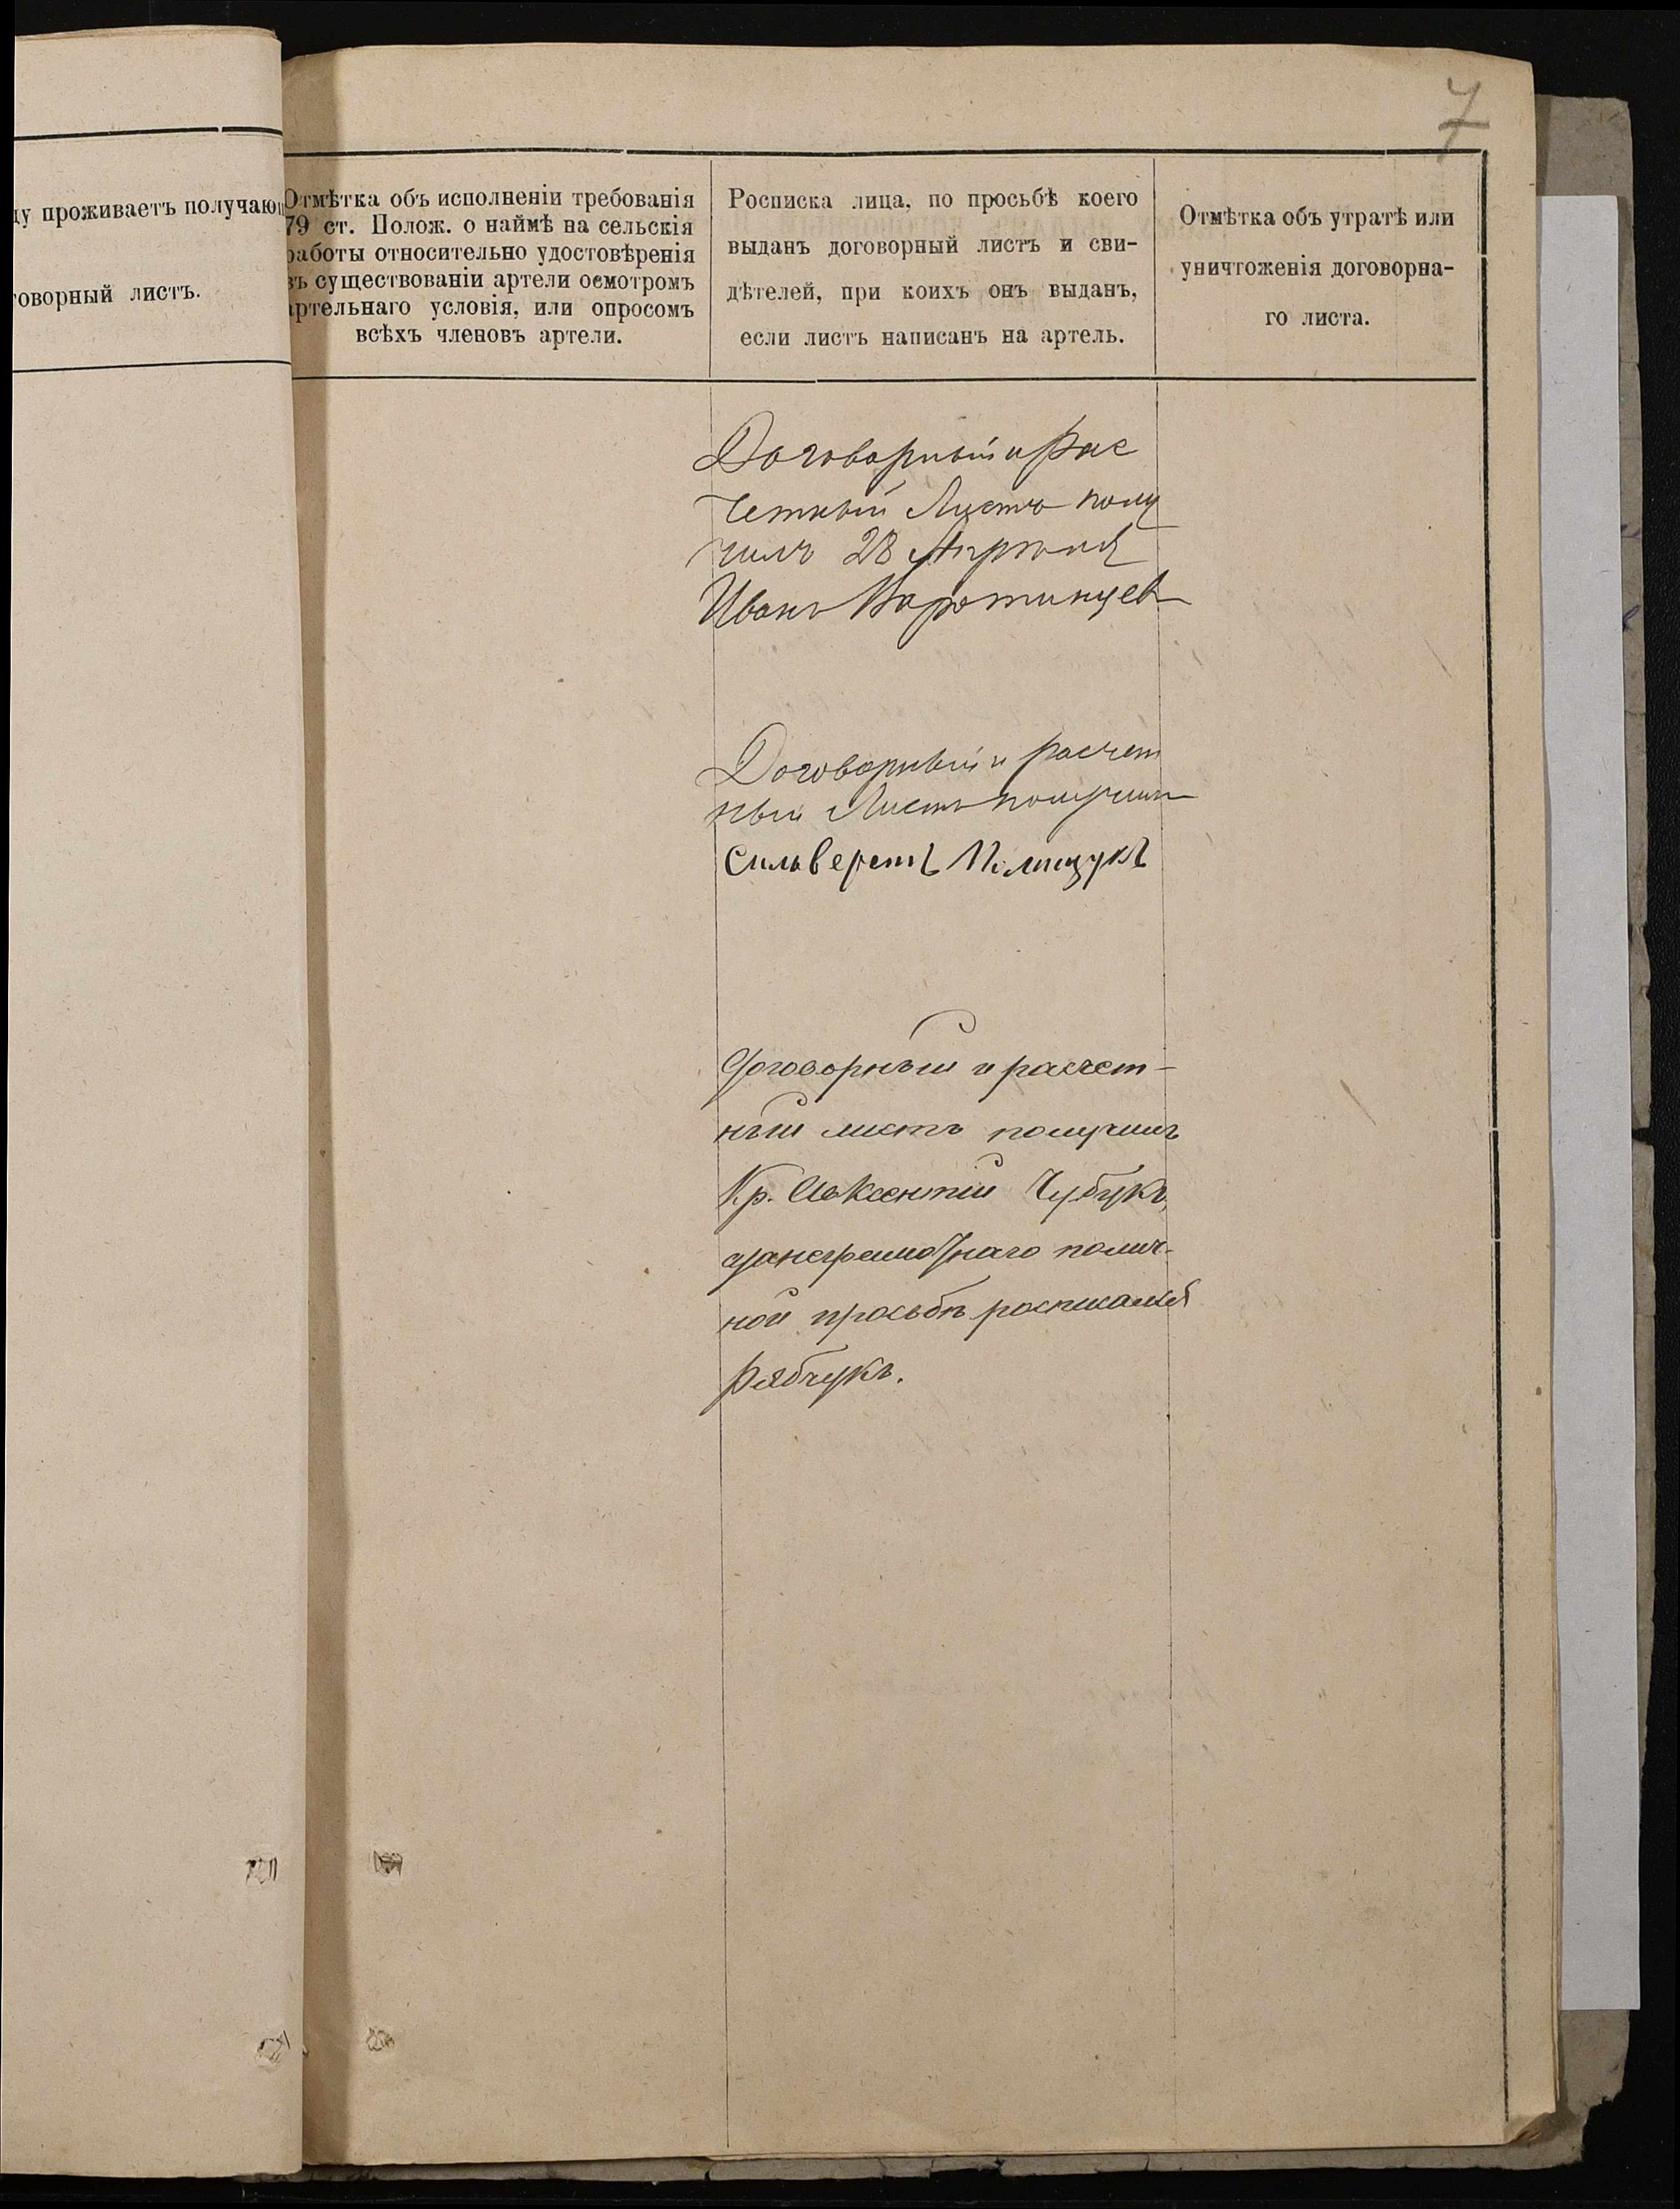 7
ду проживаетъ получаю
говорный листъ.
Отмѣтка объ исполненіи требованія
79 ст. Полож. о наймѣ на сельскія
работы относительно удостовѣренія
въ существованіи артели осмотромъ
артельнаго условія, или опросомъ
всѣхъ членовъ артели.
Росписка лица, по просьбѣ коего
выданъ договорный листъ и сви-
дѣтелей, при коихъ онъ выданъ,
если листъ написанъ на артель.
Отмѣтка объ утратѣ или
уничтоженія договорна-
го листа.
Договорный и Рас
четный Листъ полу
чилъ 28 Апрѣля
Иванъ Воротинцев
Договорный и расчет
ный Листъ получилъ
Сильверстъ Полищукъ
Договорный и расчет-
ный листъ получилъ
Кр. Авксентій Чубукъ,
а за неграмотнаго по лич-
ной просьбѣ росписался
Рябчукъ.